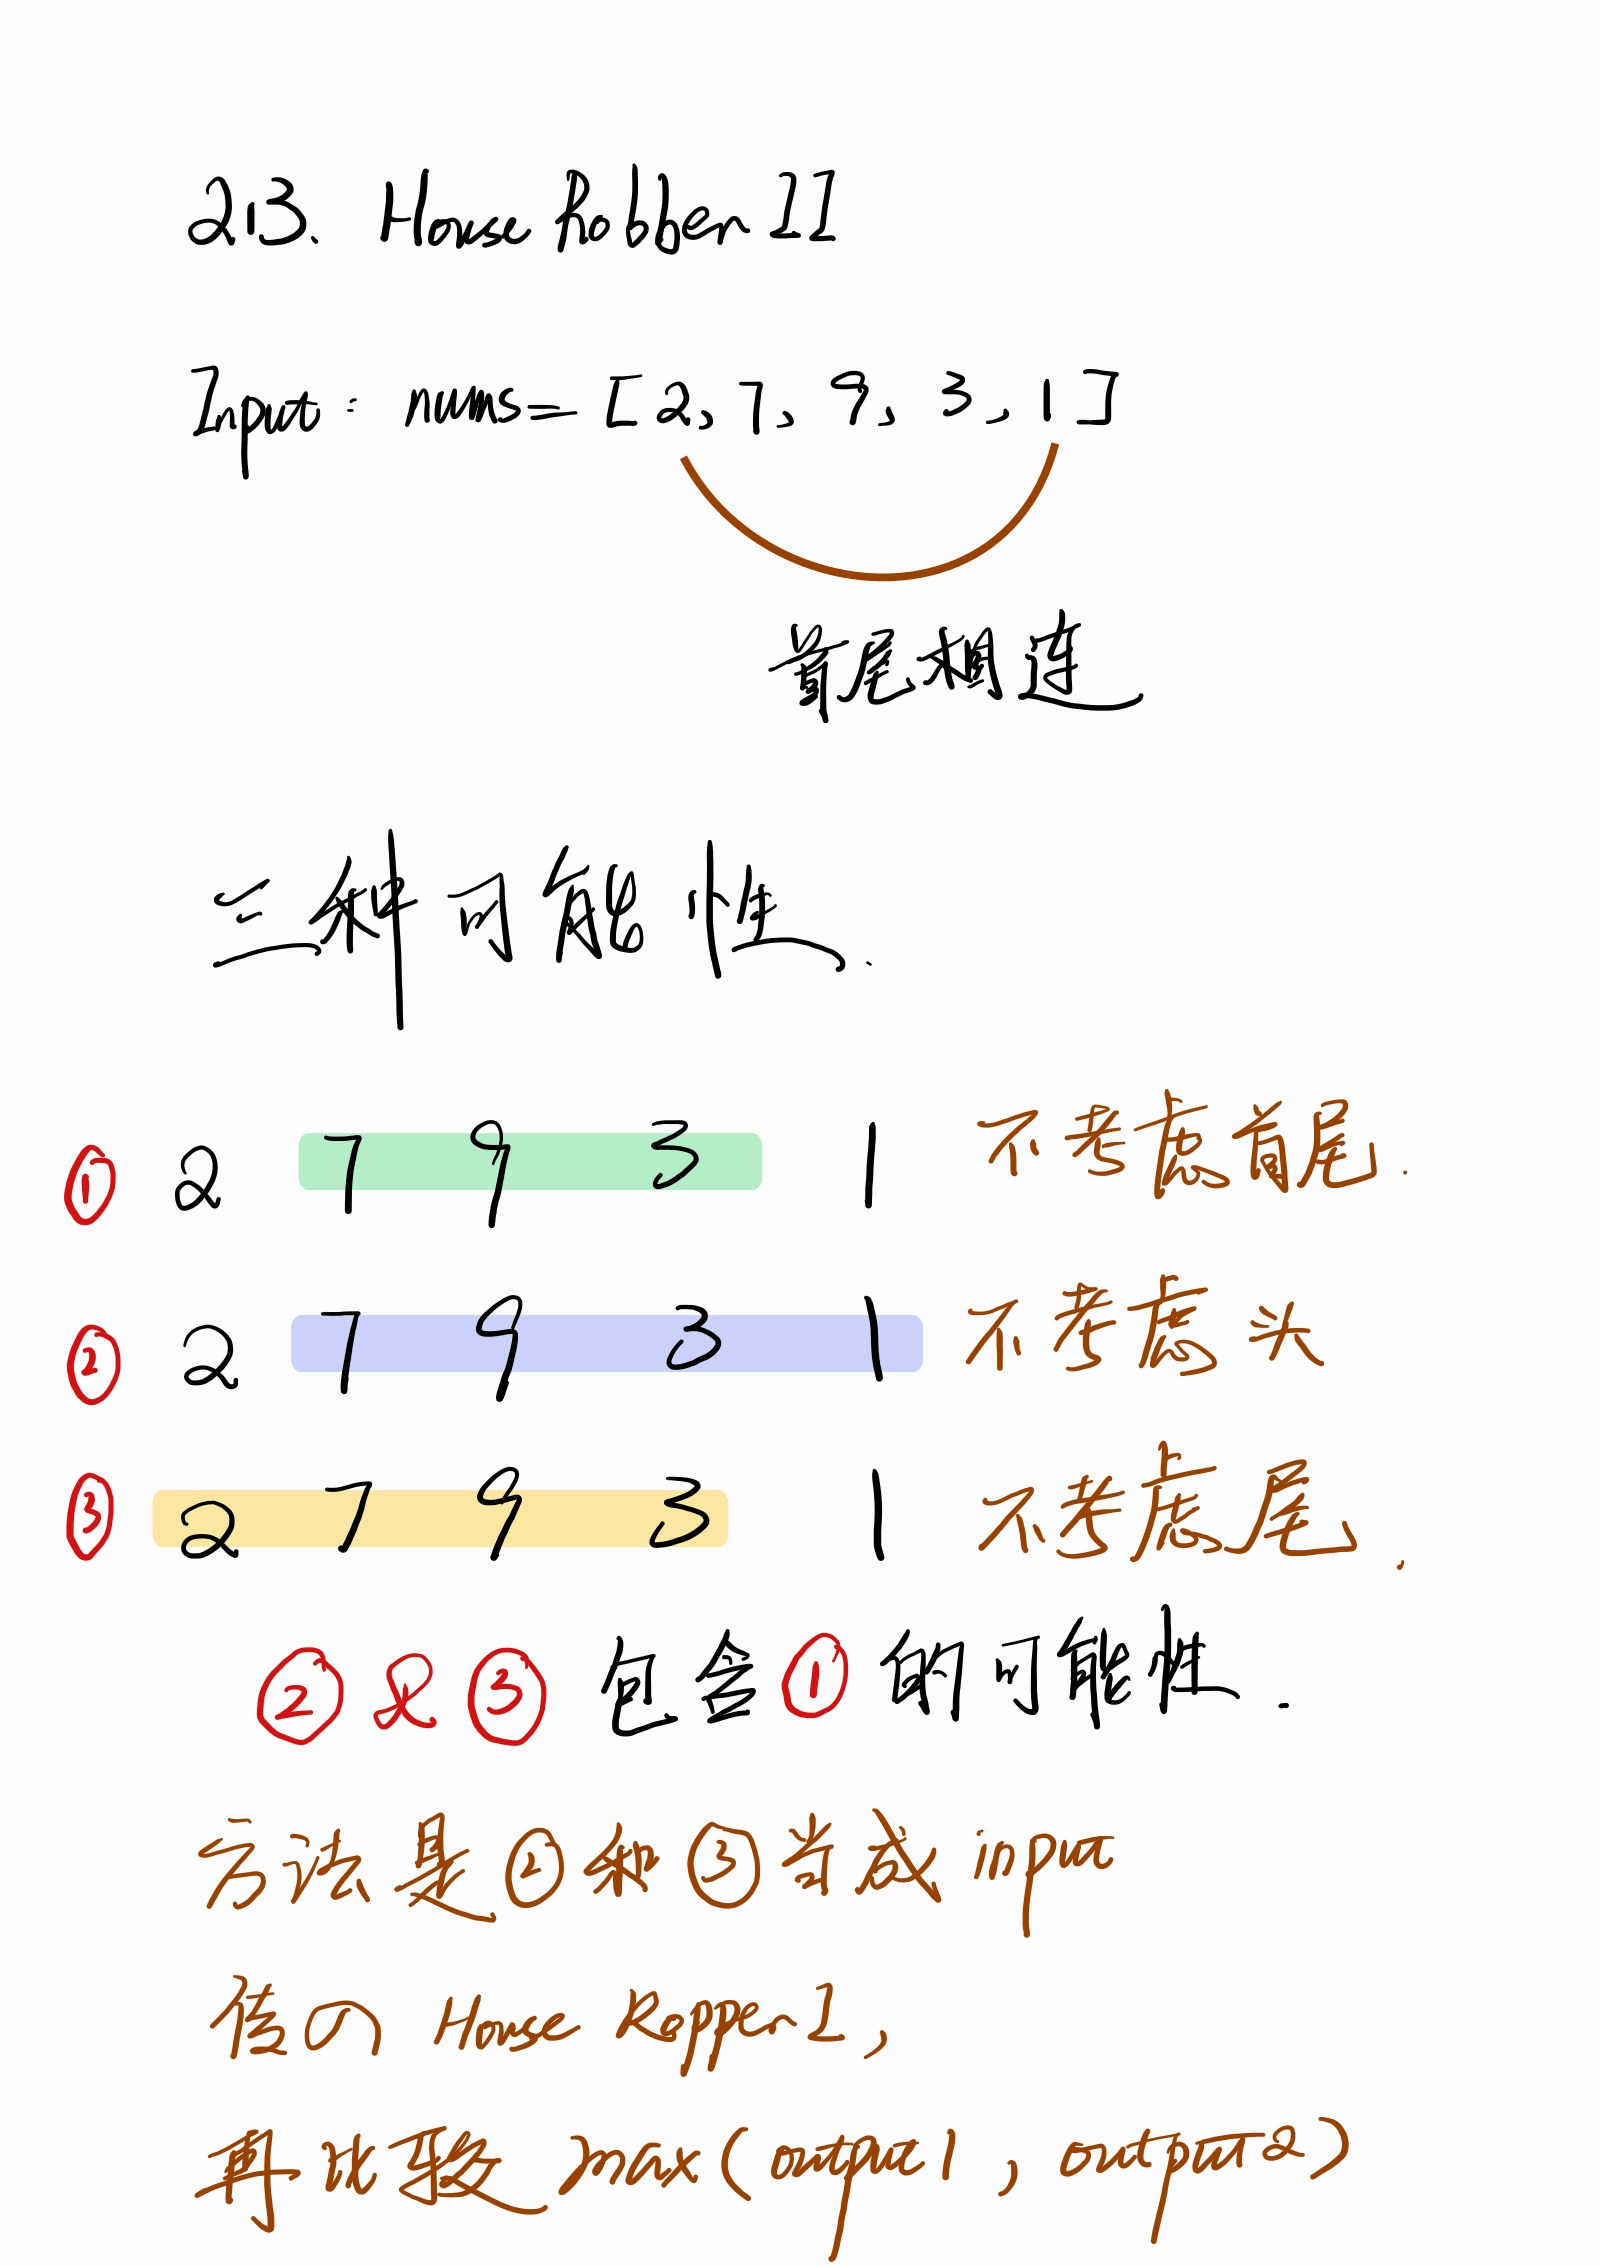 213. House Robber II
Input: nums = [2, 7, 9, 3, 1]
首尾相连
三种可能性.
① 2 7 9 3 1 不考虑首尾.
② 2 7 9 3 1 不考虑头
③ 2 7 9 3 1 不考虑尾.
② & ③ 包含①的可能性.
方法是②和③当成 input
传 House Ropper I,
再比较 max(output1, output2)